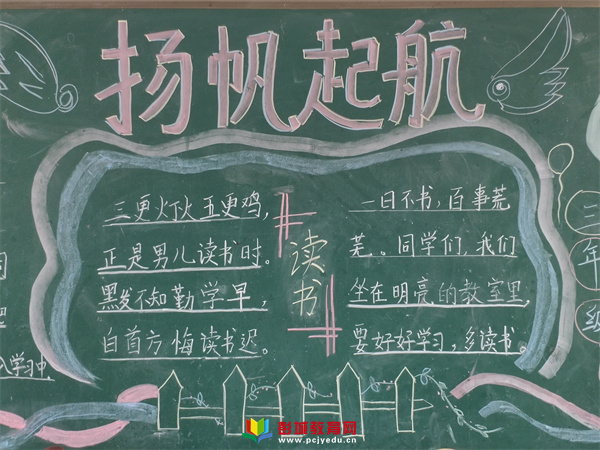 扬帆起航
三更灯火五更鸡,
正是男儿读书时。
黑发不知勤学早,
白首方悔读书迟。
读书
一日不书,百事荒
芜。同学们,我们
坐在明亮的教室里,
要好好学习,多读书。
二
年
级
学习中
彭城教育网
www.pcjyedu.cn